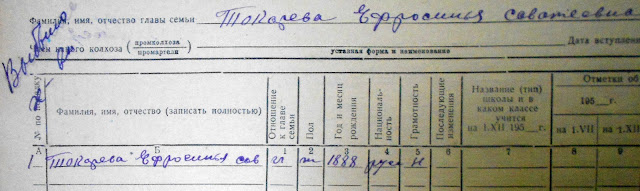 Фамилия, имя, отчество главы семьи Токарева Ефросинья Саватеевна
какого колхоза (промколхоза промартели) уставная форма и наименование Дата вступлени
Выбыла
№ по порядку
Фамилия, имя, отчество (записать полностью)
Отношение к главе семьи
Пол
Год и месяц рождения
Националь-ность
Грамотность
Последующие изменения
Название (тип) школы и в каком классе учится на 1.XII 195 г.
Отметки об
195 г.
на 1.VII
на 1.XII
А Б 1 2 3 4 5 6 7 8 9
1 Токарева Ефросинья Сав гл ж 1888 русс н